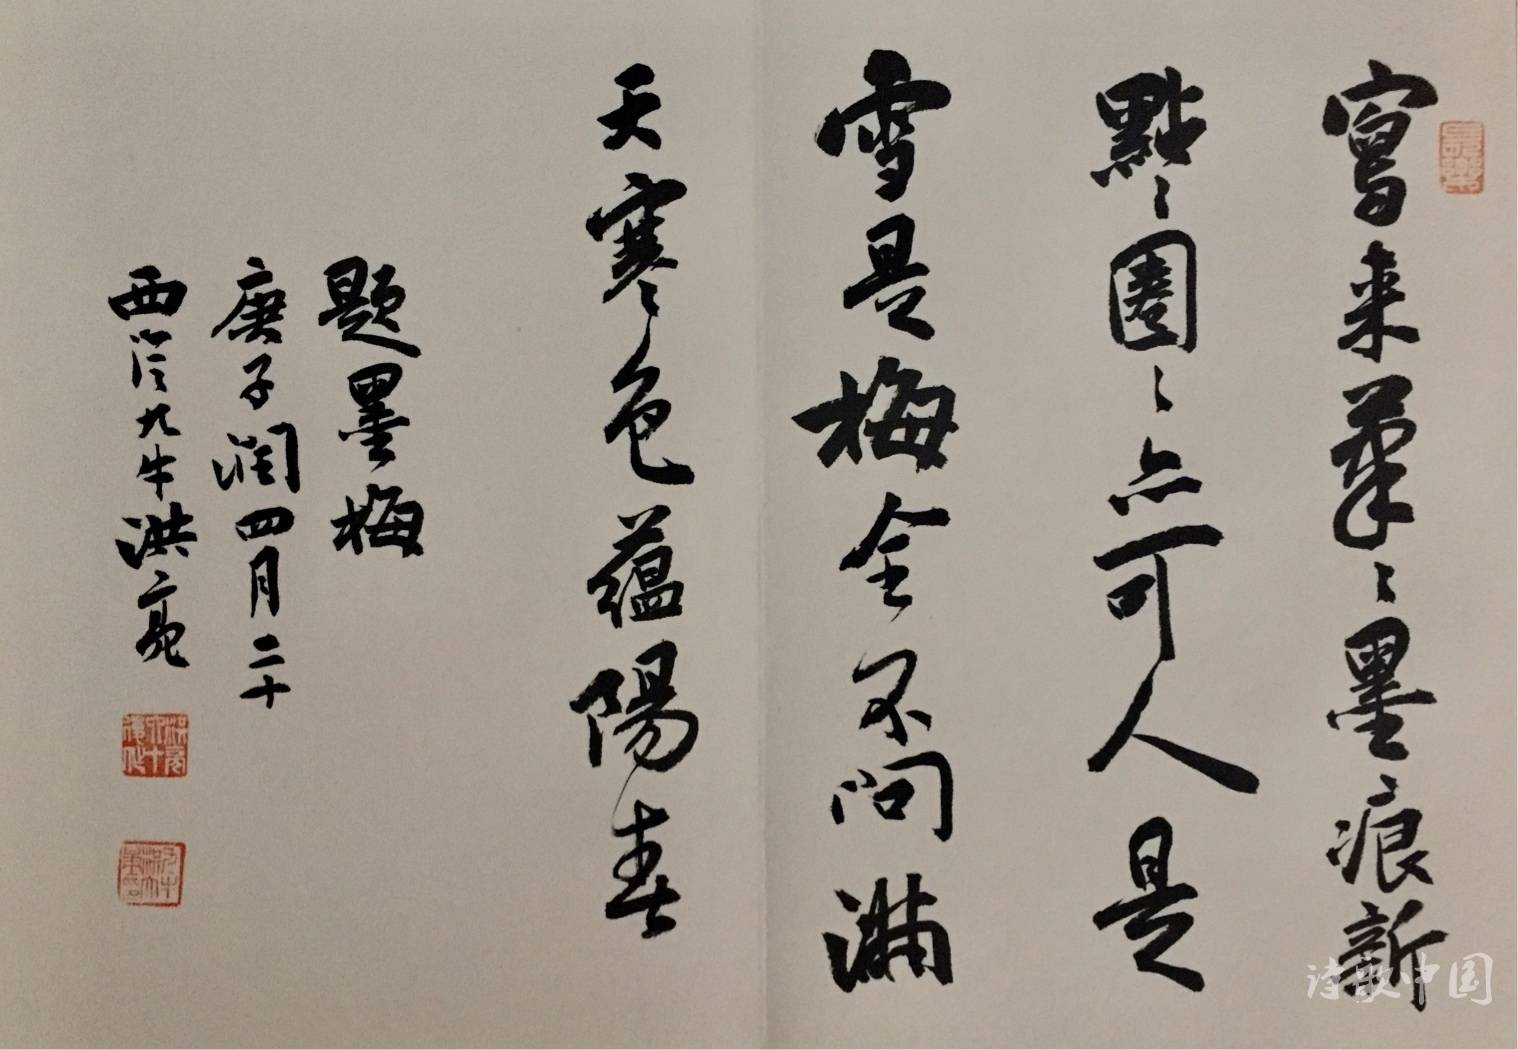 寫来筆〻墨痕新
點〻圈〻亦可人是
雪是梅全不問滿
天寒色蘊陽春
題墨梅
庚子閏四月二十
西泠九牛洪亮
洪亮六十後作
诗歌中国